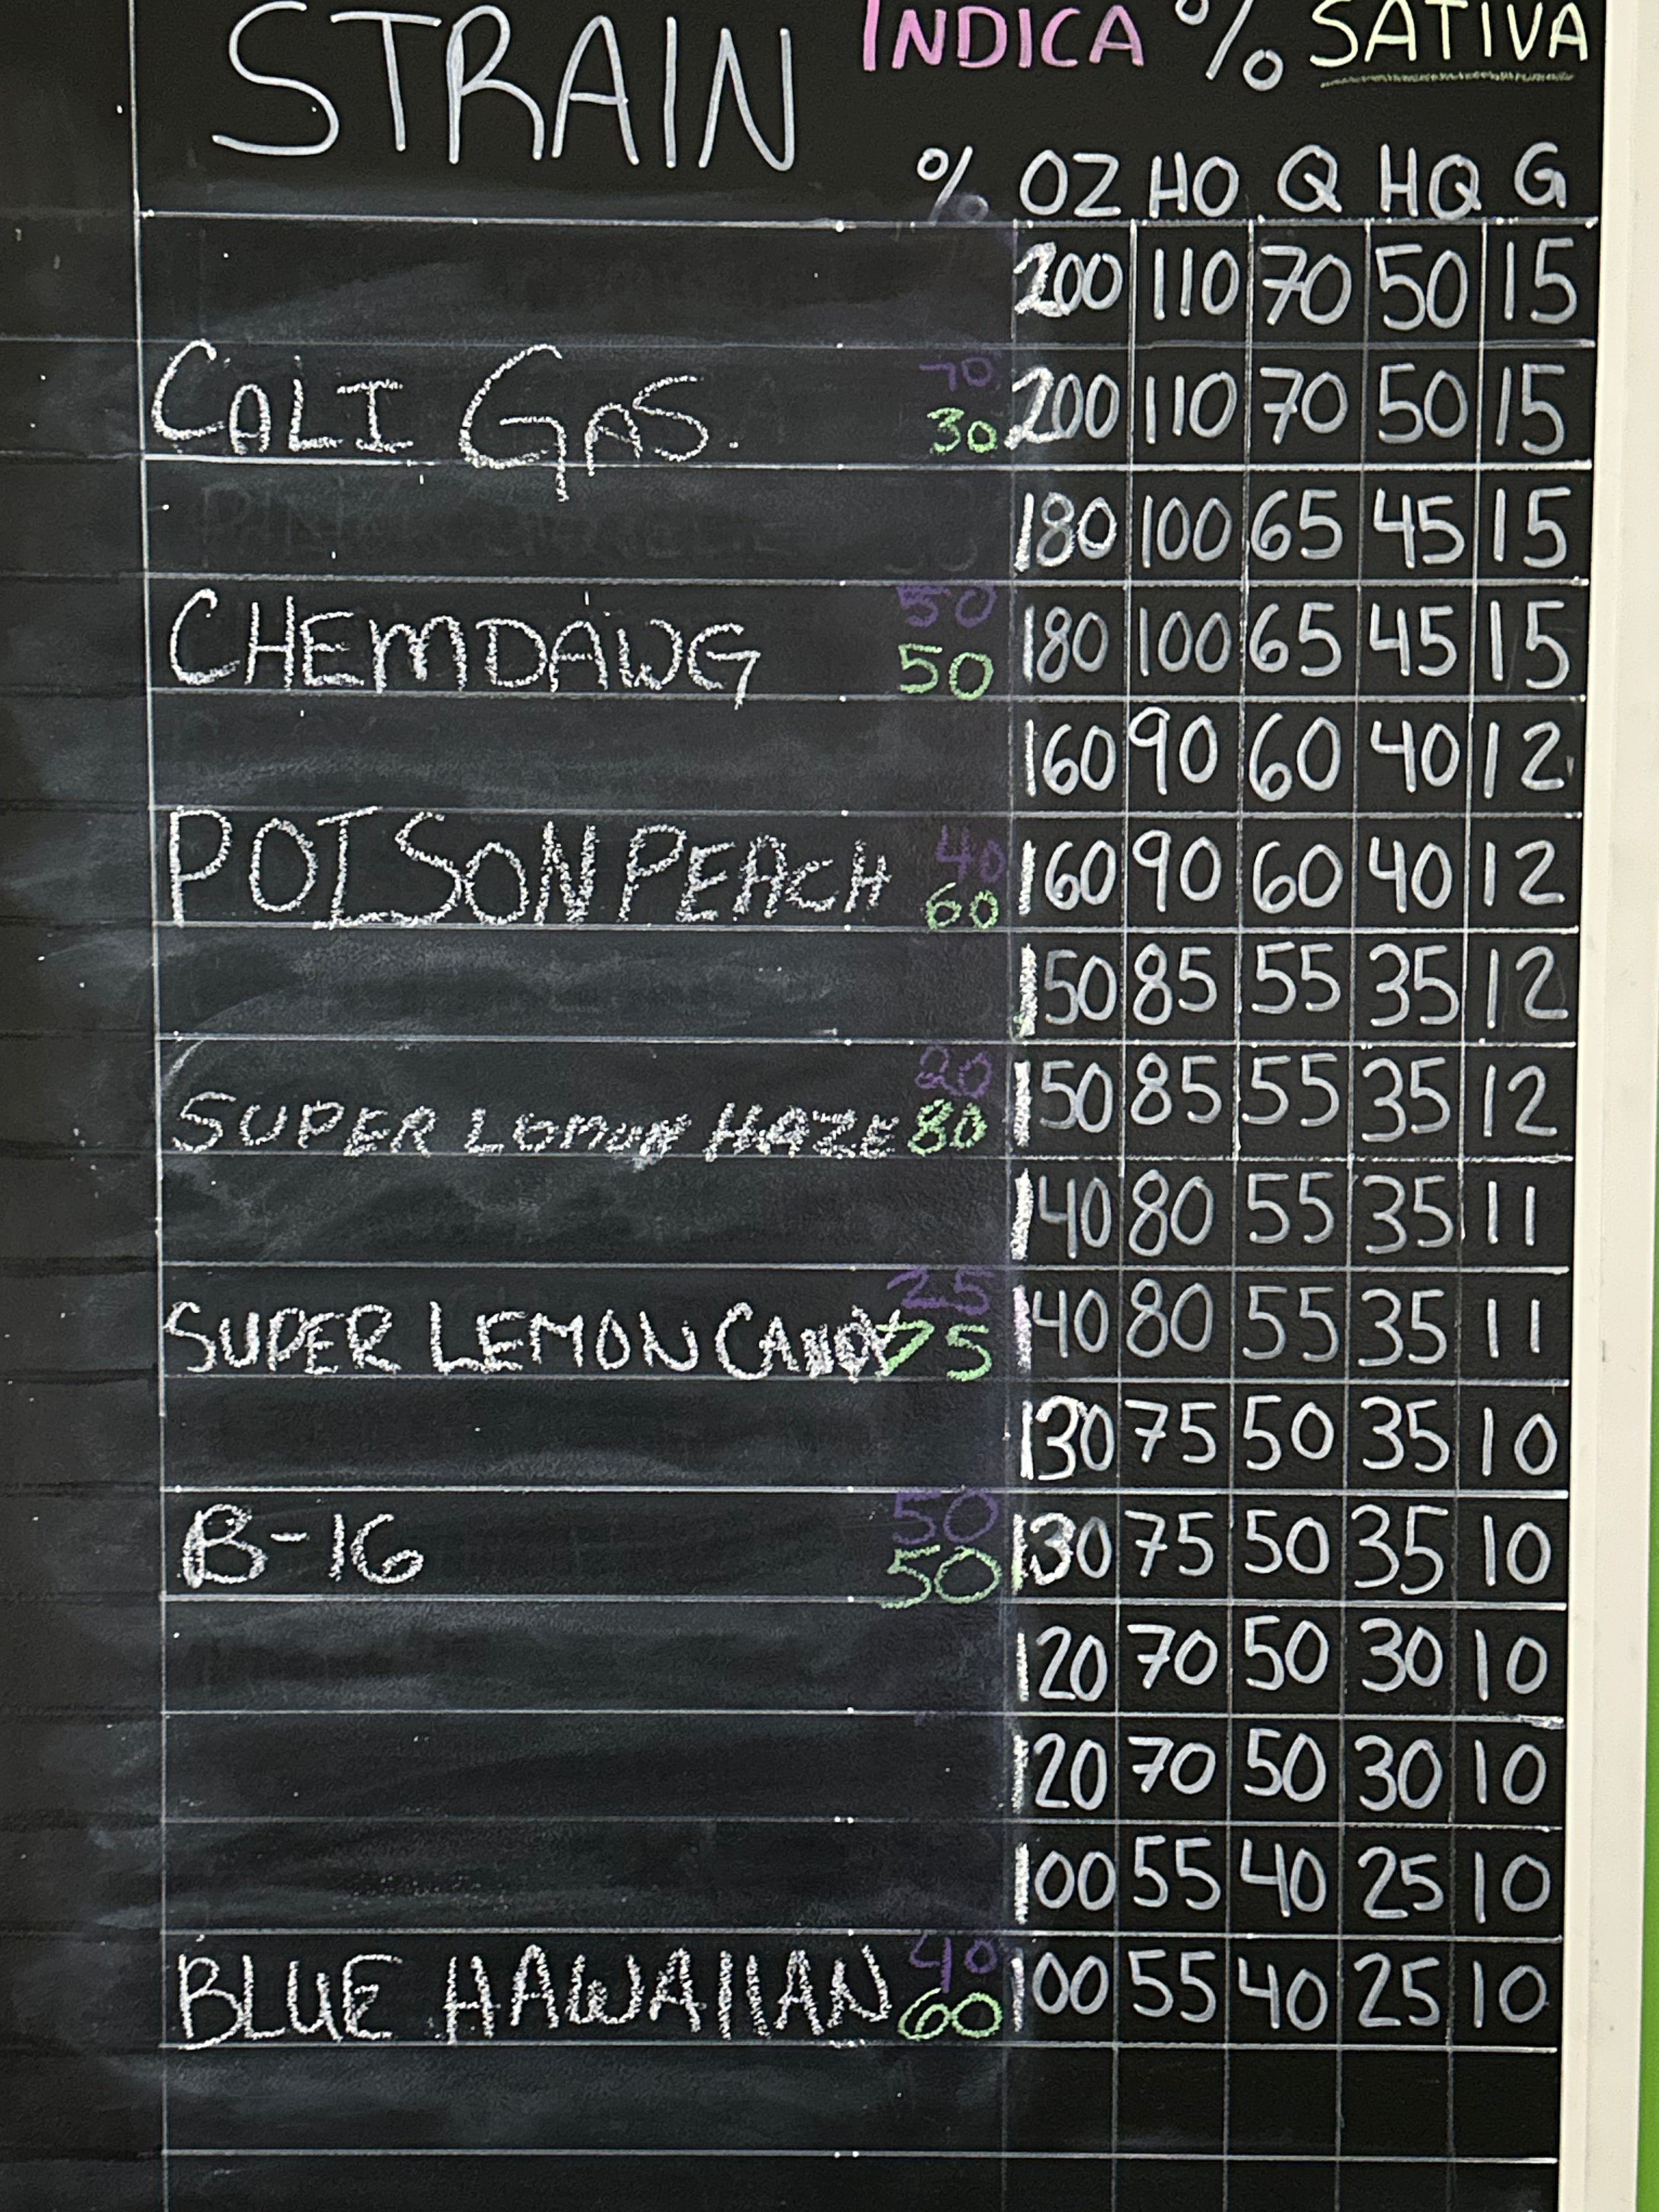 STRAIN INDICA % SATIVA
% OZ HO Q HQ G
200 110 70 50 15
CALI GAS 70 30 200 110 70 50 15
180 100 65 45 15
CHEMDAWG 50 50 180 100 65 45 15
160 90 60 40 12
POISON PEACH 40 60 160 90 60 40 12
150 85 55 35 12
SUPER LEMON HAZE 20 80 150 85 55 35 12
140 80 55 35 11
SUPER LEMON CANDY 25 75 140 80 55 35 11
130 75 50 35 10
B-16 50 50 130 75 50 35 10
120 70 50 30 10
120 70 50 30 10
100 55 40 25 10
BLUE HAWAIIAN 40 60 100 55 40 25 10